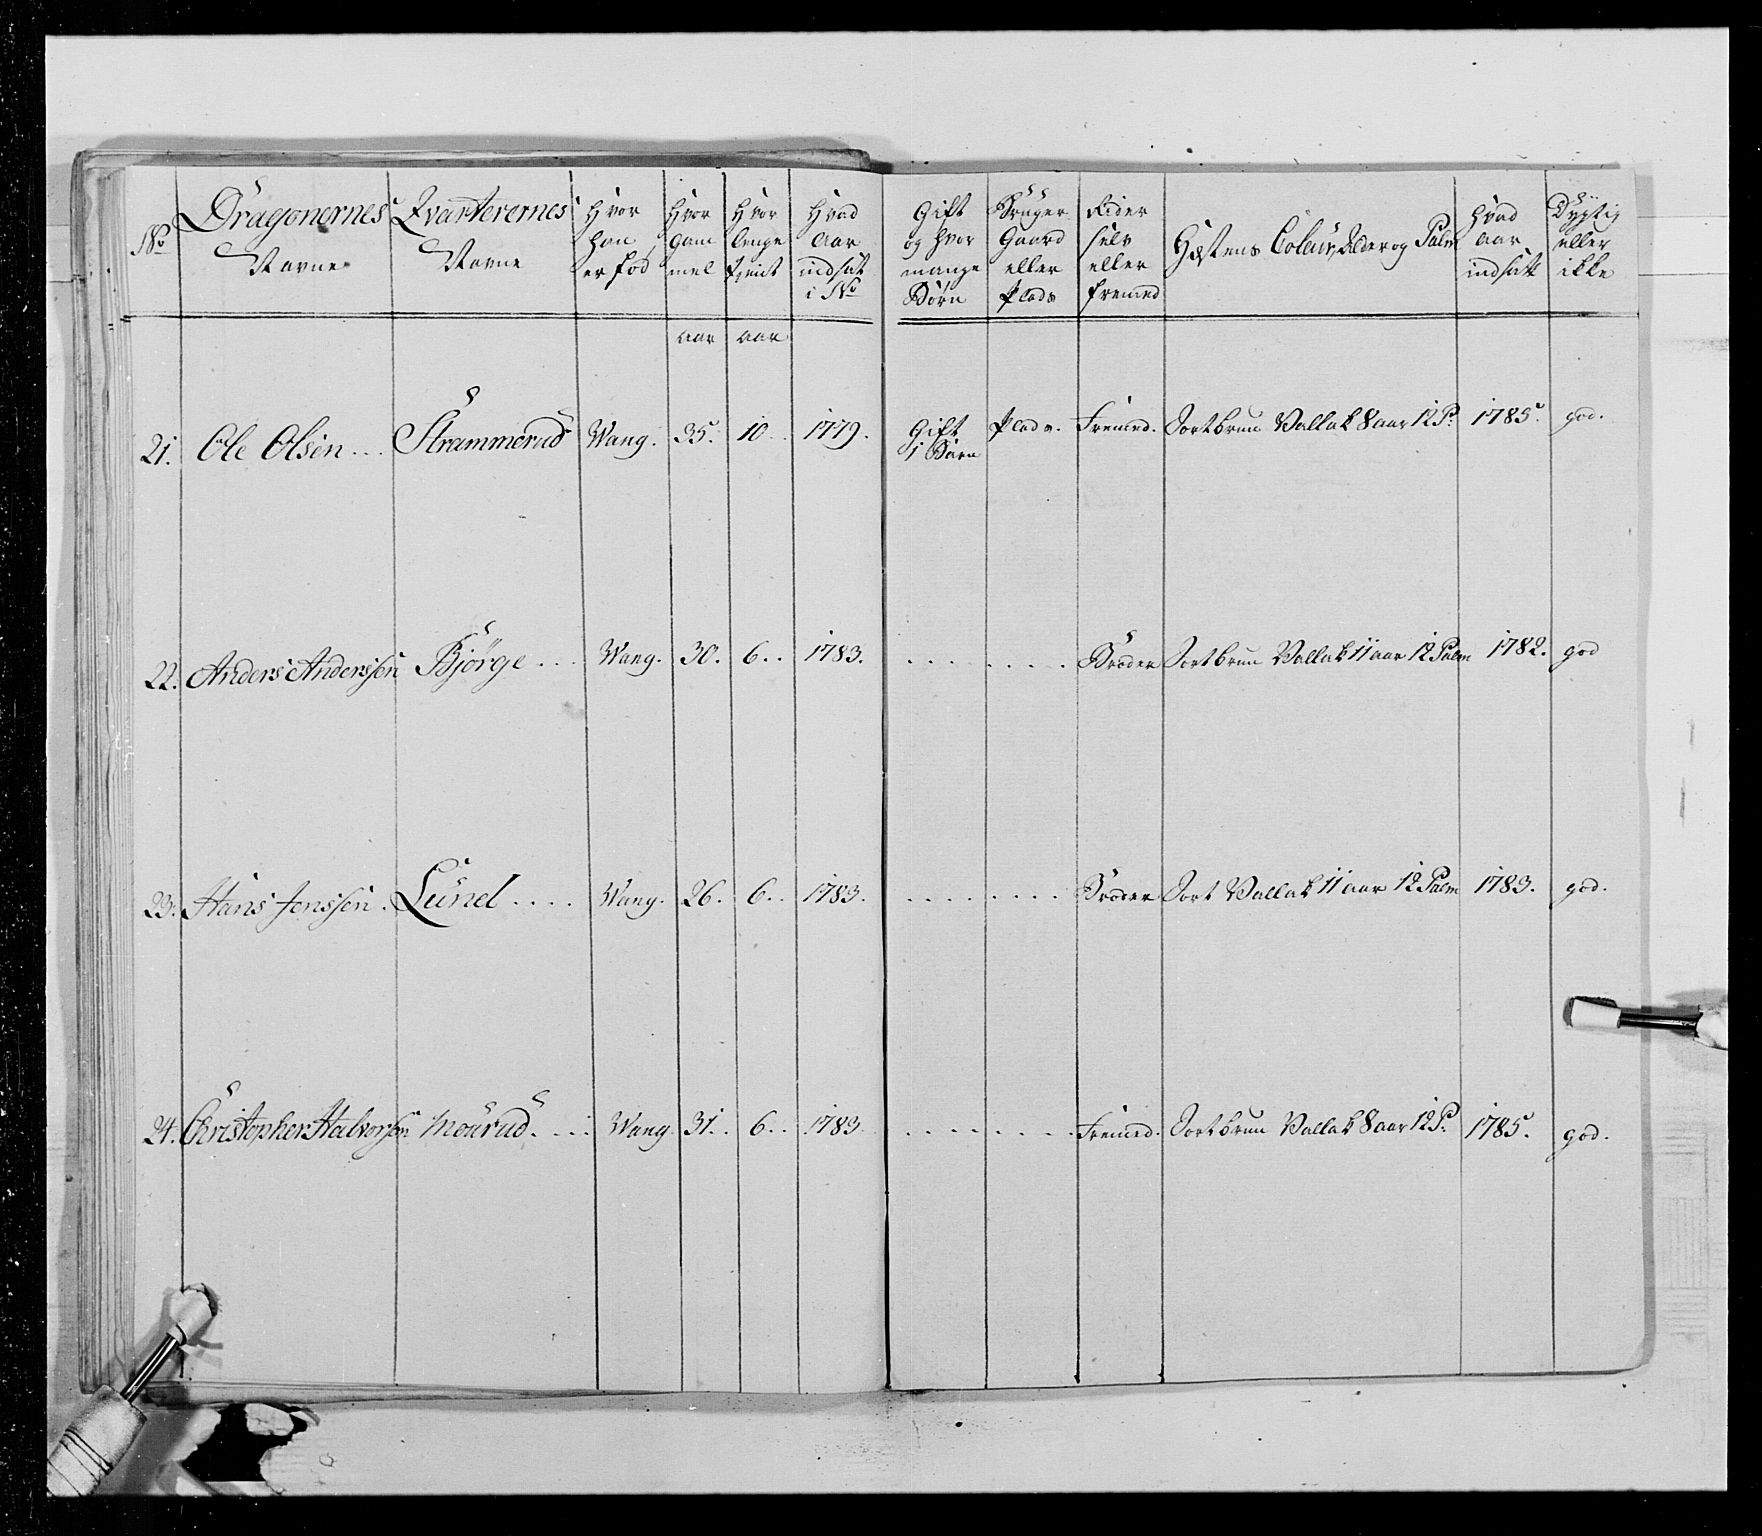 No
Dragonernes Navne
Qvarterernes Navne
Hvor han er fød
Hvor gam mel
Hvor lenge tient
Hvad Aar indsat i No
Gift og hvor mange Børn
Bruger Gaard eller Plads
Rider selv eller fremed
Hæstens Coleur, Alder og Palm
Hvad aar indsatt
Dygtig eller ikke
aar aar
21. Ole Olsen... Strammerud Wang. 35. 10.. 1779. Gift 1 Barn Plads. Fremed. Sortbrun Vallak 8 aar 12 P. 1785. god.
22. Anders Anderssen Bjørge... Wang. 30. 6.. 1783. ....... Broder Sortbrun Vallak 11 aar 12 Palm 1782. god
23. Hans Jenssen. Lund.... Wang. 26. 6.. 1783. ....... Broder Sort Vallak 11 aar 12 Palm 1783. god.
24. Christopher Halvorsen Mourud.... Wang. 31. 6.. 1783. ....... Fremed. Sortbrun Vallak 8 aar 12 P. 1785. god.